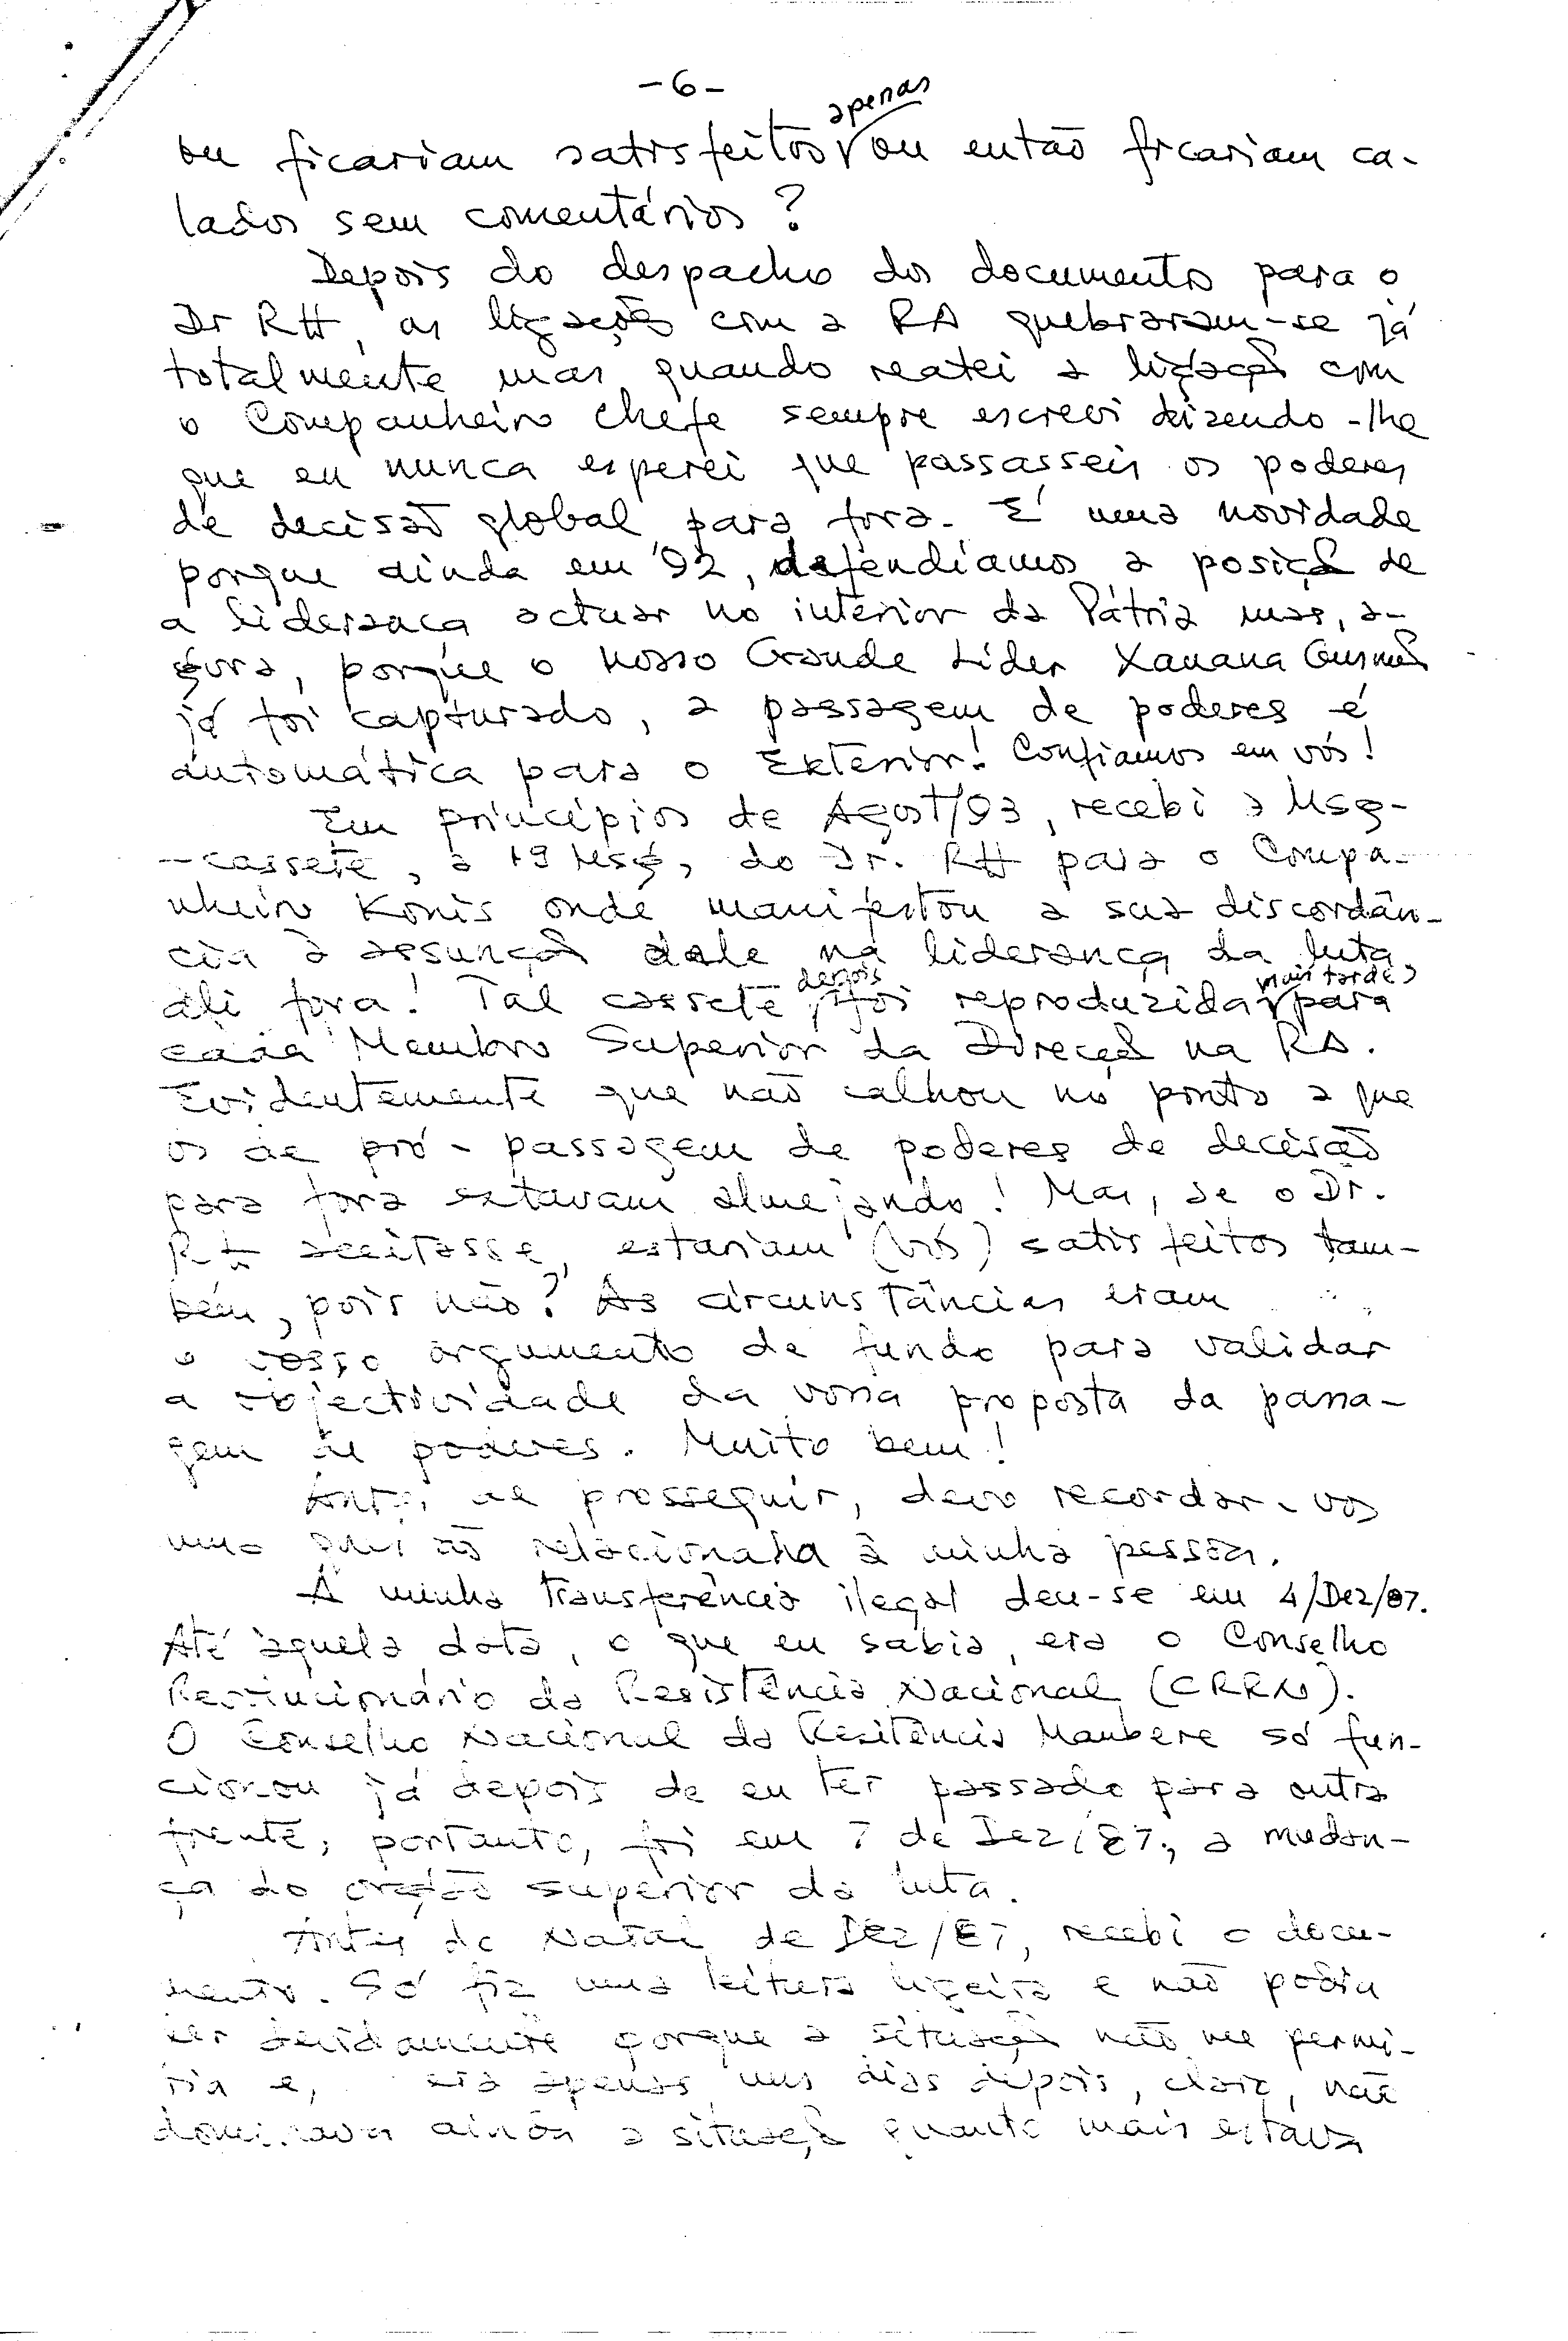 -6-
ou ficariam satisfeitos apenas ou então ficariam ca-
lados sem comentários?
Depois do despacho dos documentos para o
Dr RH, as ligações com a RA quebraram-se já
totalmente mas, quando reatei a ligação com
o Companheiro Chefe sempre escrevi dizendo-lhe
que eu nunca esperei que passasseis os poderes
de decisão global para fora. É uma novidade
porque ainda em '92, defendíamos a posição de
a liderança actuar no interior da Pátria mas, a-
gora, porque o nosso Grande Líder Xanana Gusmão
já foi capturado, a passagem de poderes é
automática para o Exterior! Confiamos em vós!
Em princípios de Agost/93, recebi a Msg-
-cassete, a 19 Msg, do Dr. RH para o Compa-
nheiro Konis onde manifestou a sua discordân-
cia à assunção dele na liderança da luta
ali fora! Tal cassete, depois foi reproduzida mais tarde, para
cada Membro Superior da Direcção na RA.
Evidentemente que não calhou no ponto a que
os de pró-passagem de poderes de decisão
para fora estavam almejando! Mas, se o Dr.
RH aceitasse, estariam (vós) satisfeitos tam-
bém, pois não? As circunstâncias eram
o vosso argumento de fundo para validar
a objectividade da vossa proposta da passa-
gem de poderes. Muito bem!
Antes de prosseguir, devo recordar-vos
uma questão relacionada à minha pessoa.
A minha transferência ilegal deu-se em 4/Dez/87.
Até àquela data, o que eu sabia, era o Conselho
Revolucionário da Resistência Nacional (CRRN).
O Conselho Nacional da Resitência Maubere só fun-
cionou já depois de eu ter passado para outra
frente, portanto, foi em 7 de Dez/87, a mudan-
ça do orgão superior da luta.
Antes do Natal de Dez/87, recebi o docu-
mento. Só fiz uma leitura ligeira e não podia
ler devidamente porque a situação não me permi-
tia e, era apenas uns dias depois, claro, não
dominava ainda a situação quanto mais estava